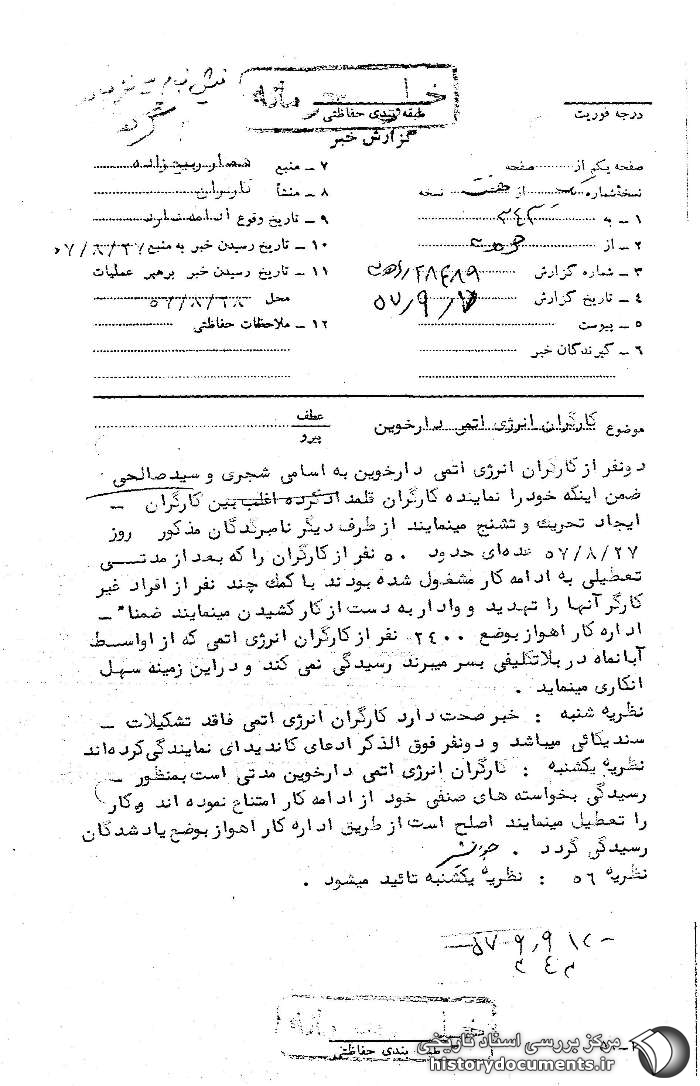 طبقه بندی حفاظتی
درجه فوریت
گزارش خبر
صفحه یکم از صفحه
نسخه شماره از هفت نسخه
۱ ـ به ۳۴۲
۲ ـ از
۳ ـ شماره گزارش
۴ ـ تاریخ گزارش ۵۷/۹/۷
۵ ـ پیوست
۶ ـ گیرندگان خبر
۷ ـ منبع
۸ ـ منشأ
۹ ـ تاریخ وقوع ادامه دارد
۱۰ ـ تاریخ رسیدن خبر به منبع ۵۷/۸/۲۷
۱۱ ـ تاریخ رسیدن خبر برهبر عملیات
محل ۵۷/۸/۲۸
۱۲ ـ ملاحظات حفاظتی
موضوع کارگران انرژی اتمی دارخوین
عطف
پیرو
دونفر از کارگران انرژی اتمی دارخوین به اسامی شجری و سیدصالحی
ضمن اینکه خود را نماینده کارگران قلمداد کرده اغلب بین کارگران ـ
ایجاد تحریک و تشنج مینمایند از طرف دیگر نامبردگان مذکور روز
۵۷/۸/۲۷ عده‌ای حدود ۵۰ نفر از کارگران را که بعد از مدتی
تعطیلی به ادامه کار مشغول شده بودند با کمک چند نفر از افراد غیر
کارگر آنها را تهدید و وادار به دست از کار کشیدن مینمایند ضمنا" ـ
اداره کار اهواز بوضع ۲۴۰۰ نفر از کارگران انرژی اتمی که از اواسط
آبانماه در بلاتکلیفی بسر میبرند رسیدگی نمی کند و در این زمینه سهل
انکاری مینماید .
نظریه شنبه : خبر صحت دارد کارگران انرژی اتمی فاقد تشکیلات ـ
سندیکائی میباشد و دونفر فوق الذکر ادعای کاندیدای نمایندگی کرده‌اند
نظریه یکشنبه : کارگران انرژی اتمی دارخوین مدتی است بمنظور ـ
رسیدگی بخواسته های صنفی خود از ادامه کار امتناع نموده اند و کار
را تعطیل مینمایند اصلح است از طریق اداره کار اهواز بوضع یاد شدگان
رسیدگی گردد .
نظریه ۵۶ : نظریه یکشنبه تائید میشود .
بندی حفاظتی
مرکز بررسی اسناد تاریخی
historydocuments.ir